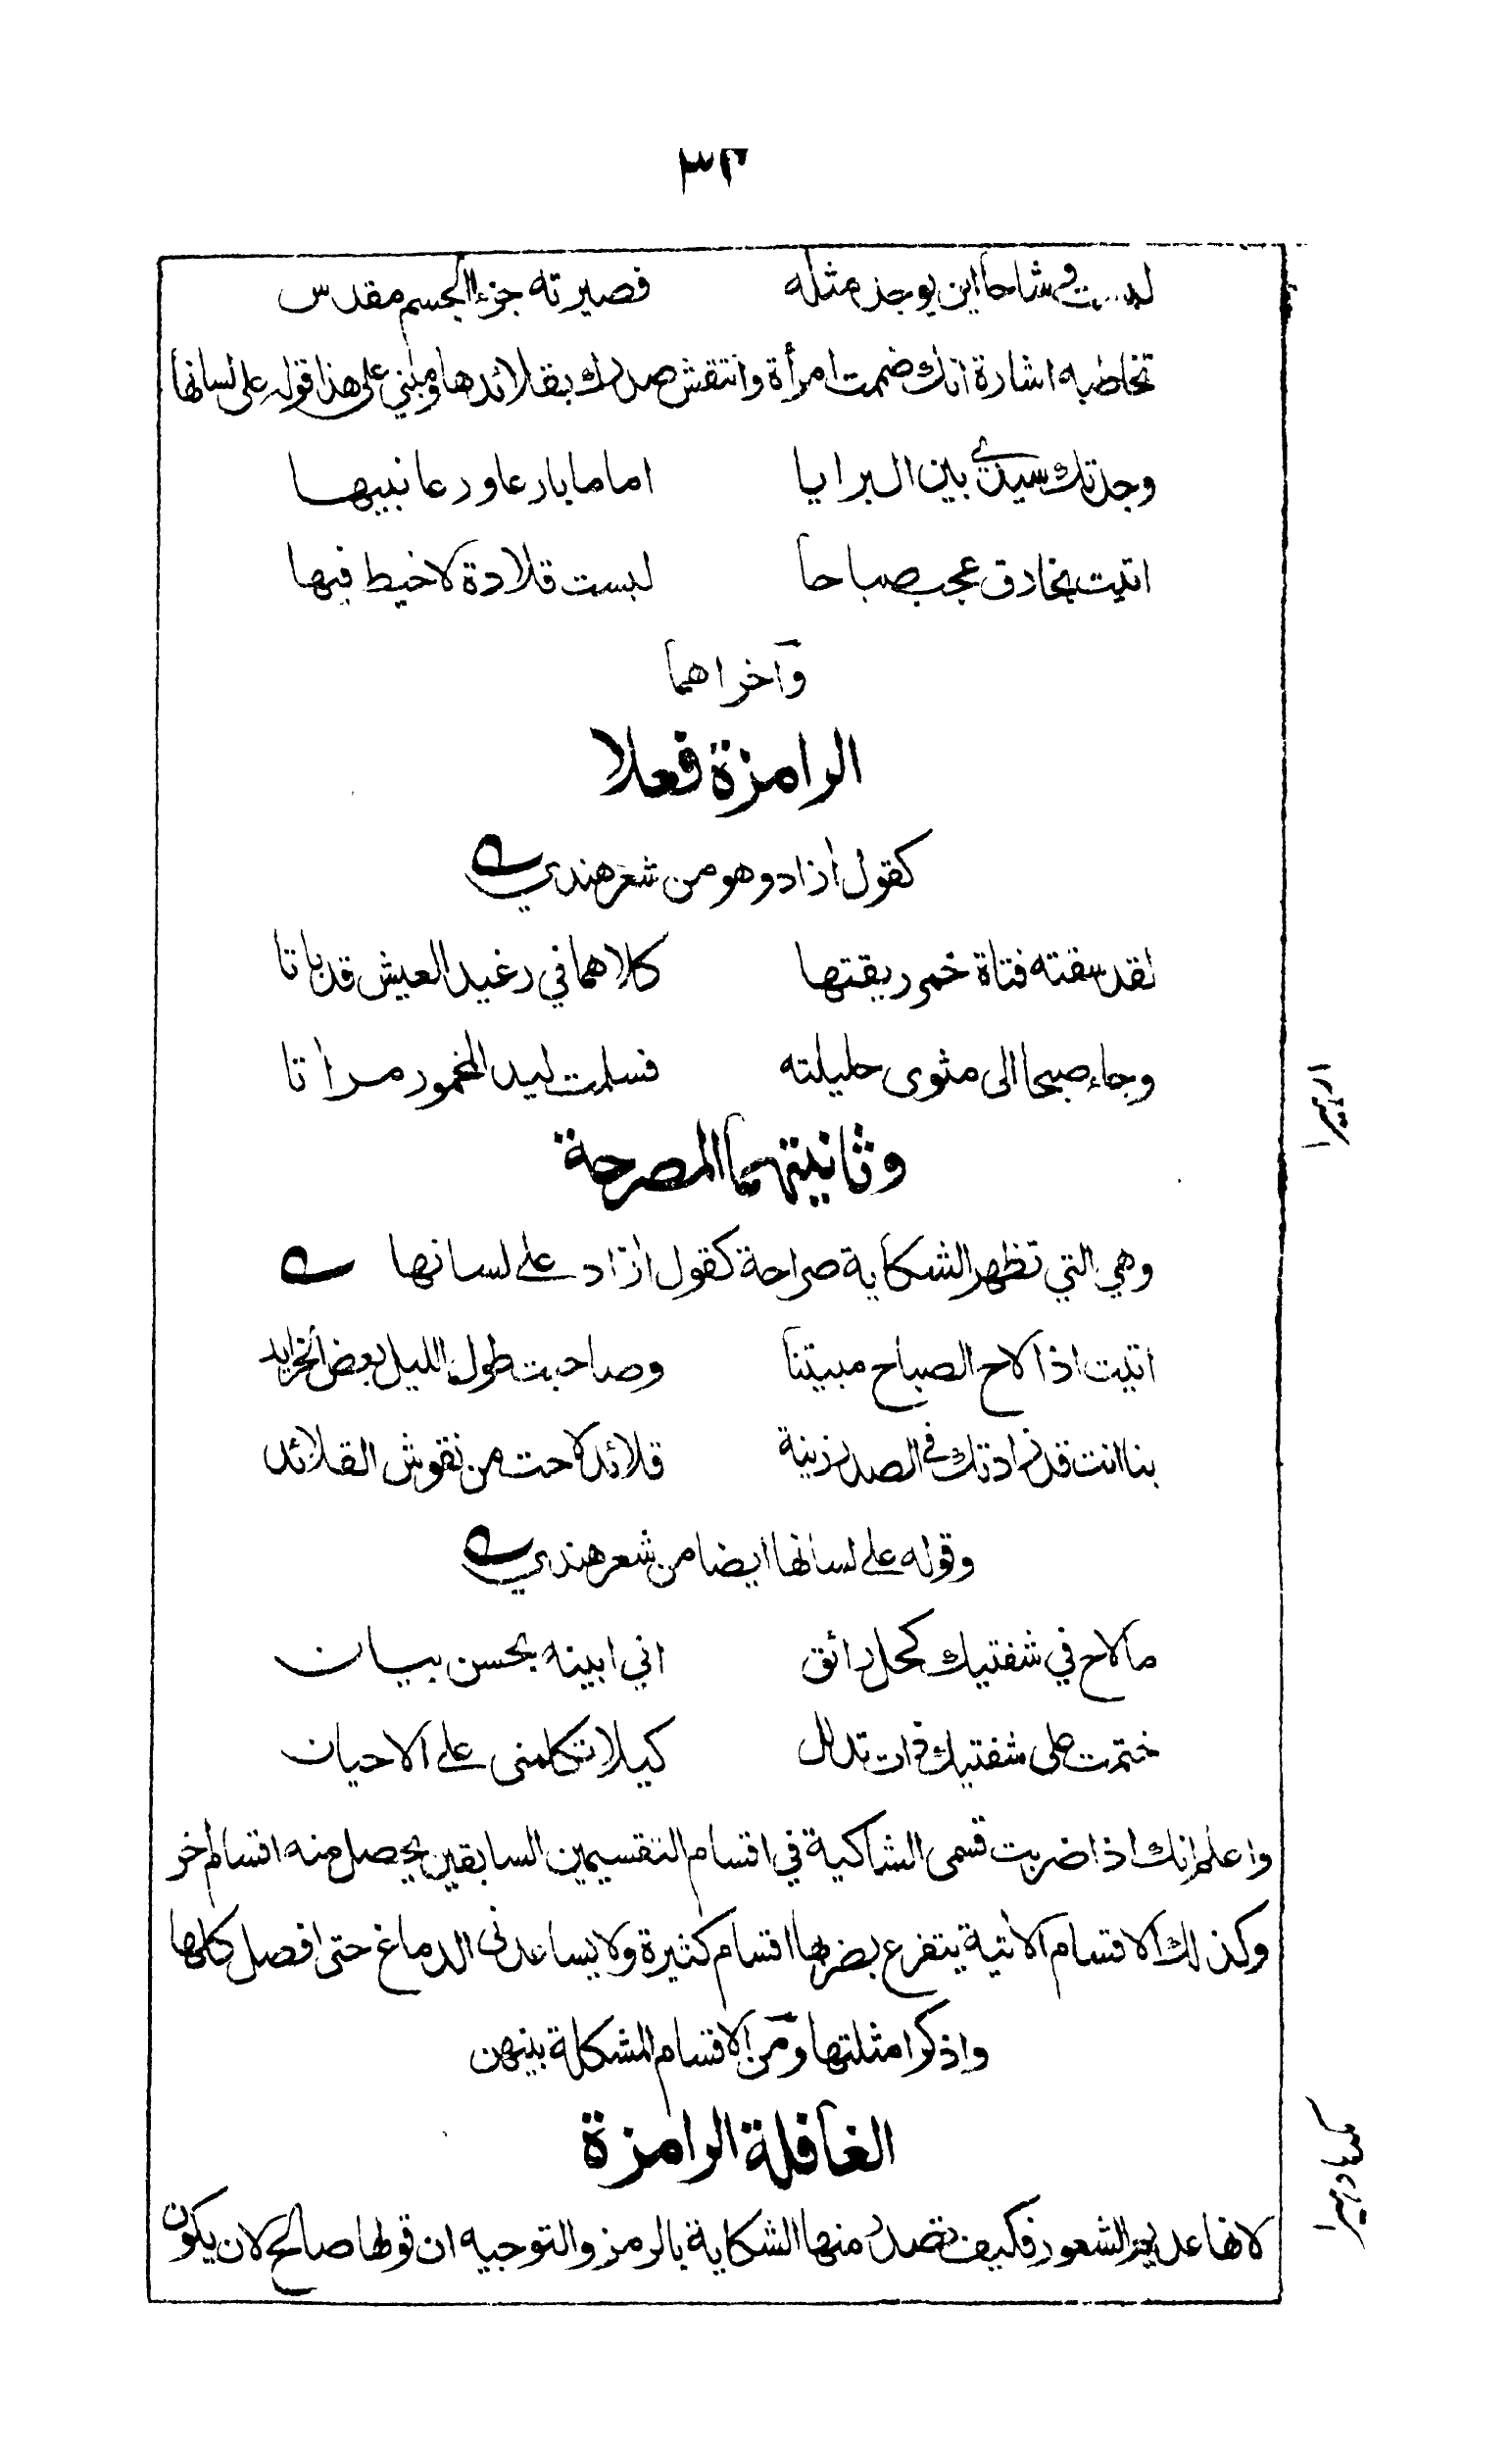 ٣٢
وشاحا اين يوجد مثله فصيرته جزء الجسم مقدس
تخاطبه اشارة انك ضممت امرأة وانتقش صدرك بقلائدها ومبني على هذا قوله على لسانها
وجدتك سيدي بين البرايا اماما بارعا ورعا نبيها
اتيت بخارق عجب صباحا لبست قلادة لا خيط فيها
وآخراهما
الرامزة فعلا
كقول آزاد وهو من شعر هندي
لقد سقته فتاة خمر ريقتها كلاهما في رغيد العيش قد باتا
وجاء صبحا الى مثوى حليلته فسلمت ليد المخمور مرآتا
وثانيتهما المصرحة
وهي التي تظهر الشكاية صراحة كقول آزاد على لسانها
اتيت اذا لاح الصباح مبيتنا وصاحبت طول الليل بعض الخرايد
بنا انت قد زادتك في الصدر زينة قلائد لاحت من نقوش القلائد
وقوله على لسانها ايضا من شعر هندي
ما لاح في شفتيك كحل رائق اني ابينه بحسن بيان
ختمت على شفتيك ذات تدلل كيلا تكلمني على الاحيان
واعلم انك اذا ضربت قسمى الشاكية في اقسام التقسيمين السابقين يحصل منه اقسام أخر
وكذلك الاقسام الآتية يتفرع بضربها اقسام كثيرة ولا يساعدنى الدماغ حتى افصل كلها
واذكر امثلتها ومن الاقسام المشكلة بينهن
الغافلة الرامزة
لانها عديمة الشعور فكيف تصدر منها الشكاية بالرمز والتوجيه ان قولها صالح لان يكون